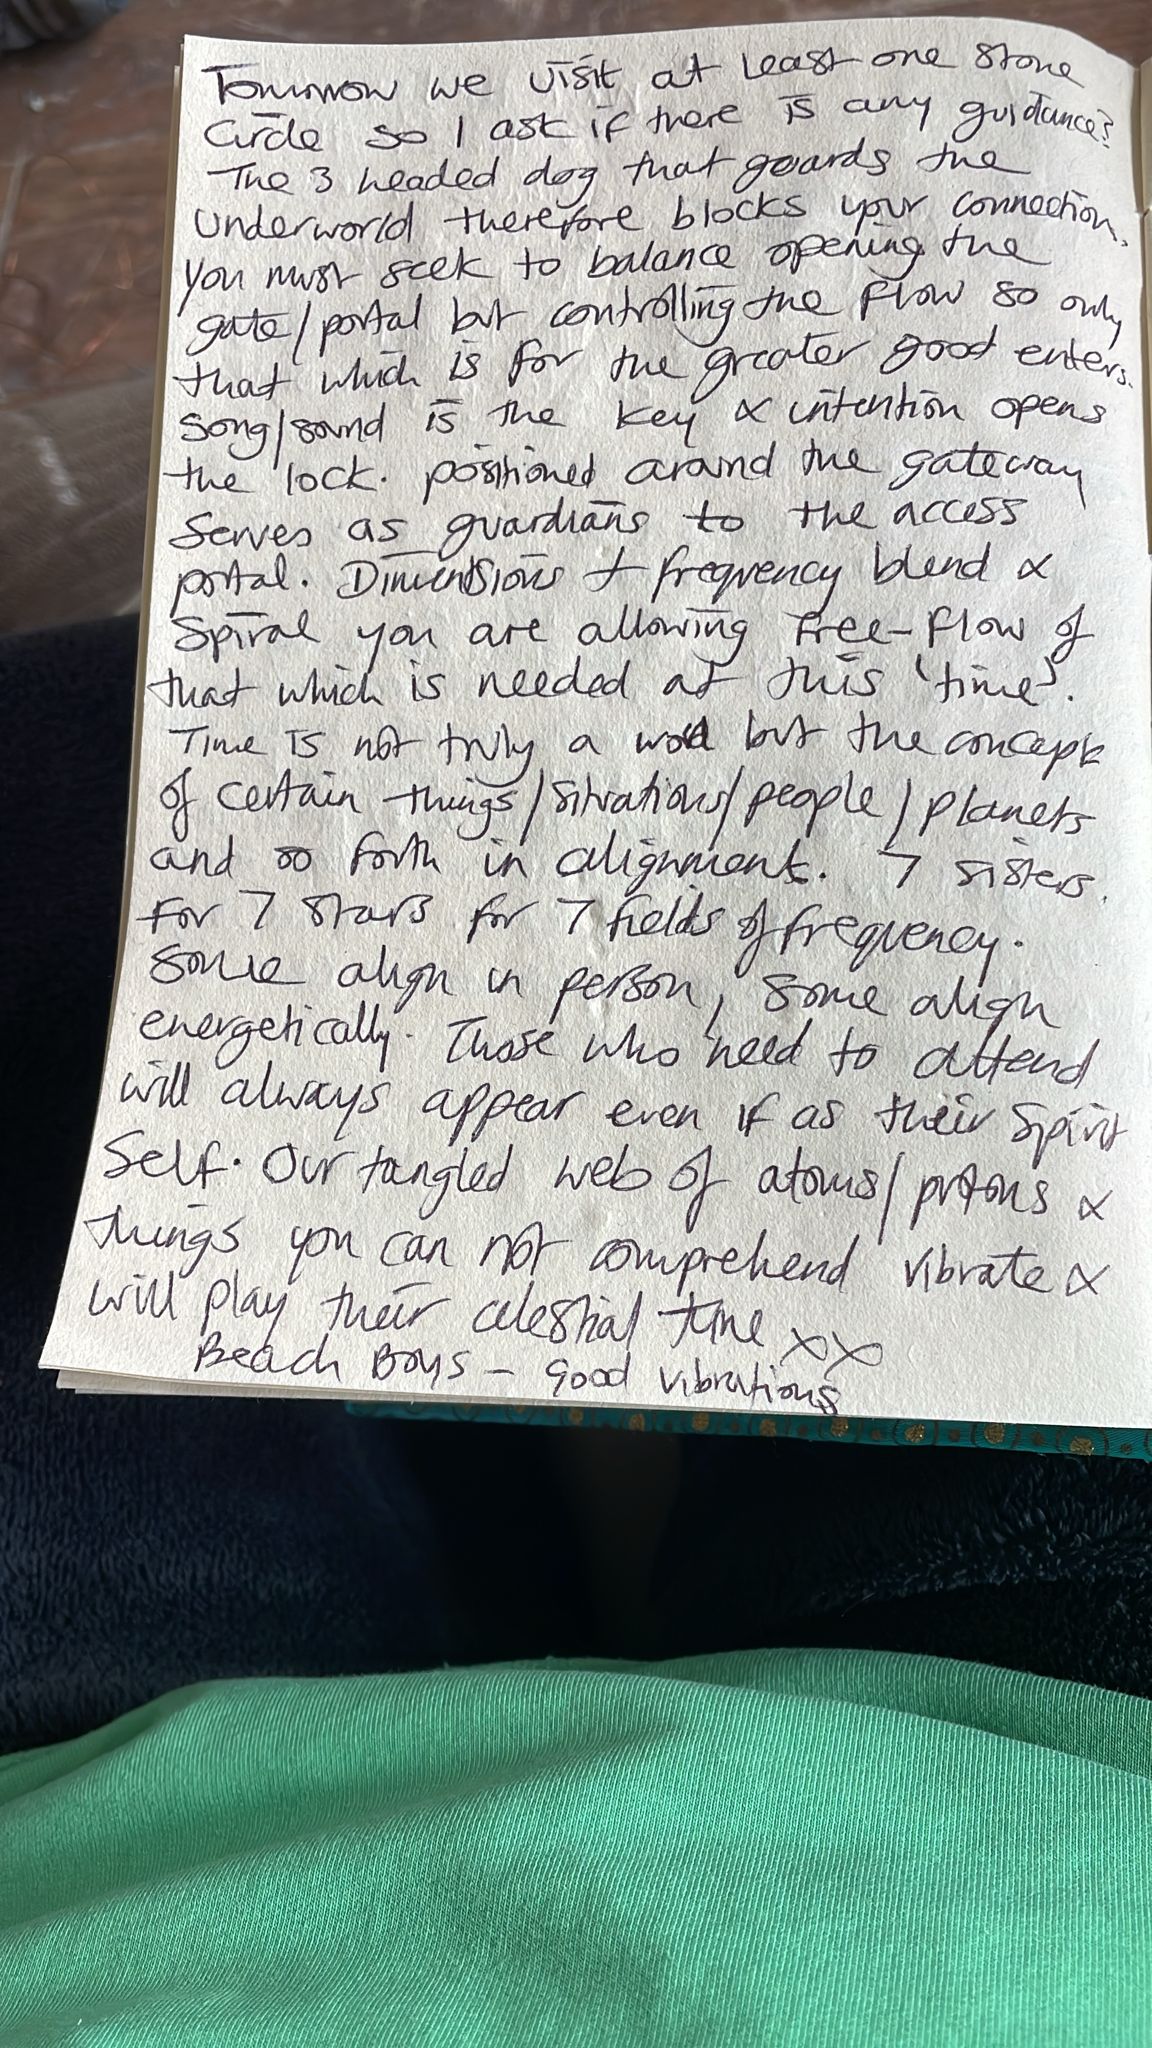 Tomorrow we visit at least one stone
circle so I ask if there is any guidance?
The 3 headed dog that guards the
underworld therefore blocks your connection.
You must seek to balance opening the
gate/portal but controlling the flow so only
that which is for the greater good enters.
Song/sound is the key & intention opens
the lock. positioned around the gateway
serves as guardians to the access
portal. Dimensions + frequency blend &
spiral you are allowing free-flow of
that which is needed at this 'time'.
Time is not truly a but the concept
of certain things/situations/people/planets
and so forth in alignment. 7 sisters.
For 7 stars for 7 fields of frequency.
Some align in person, some align
energetically. Those who need to attend
will always appear even if as their spirit
self. Our tangled web of atoms/protons &
things you can not comprehend vibrate &
will play their celestial tune xx
Beach Boys - Good vibrations